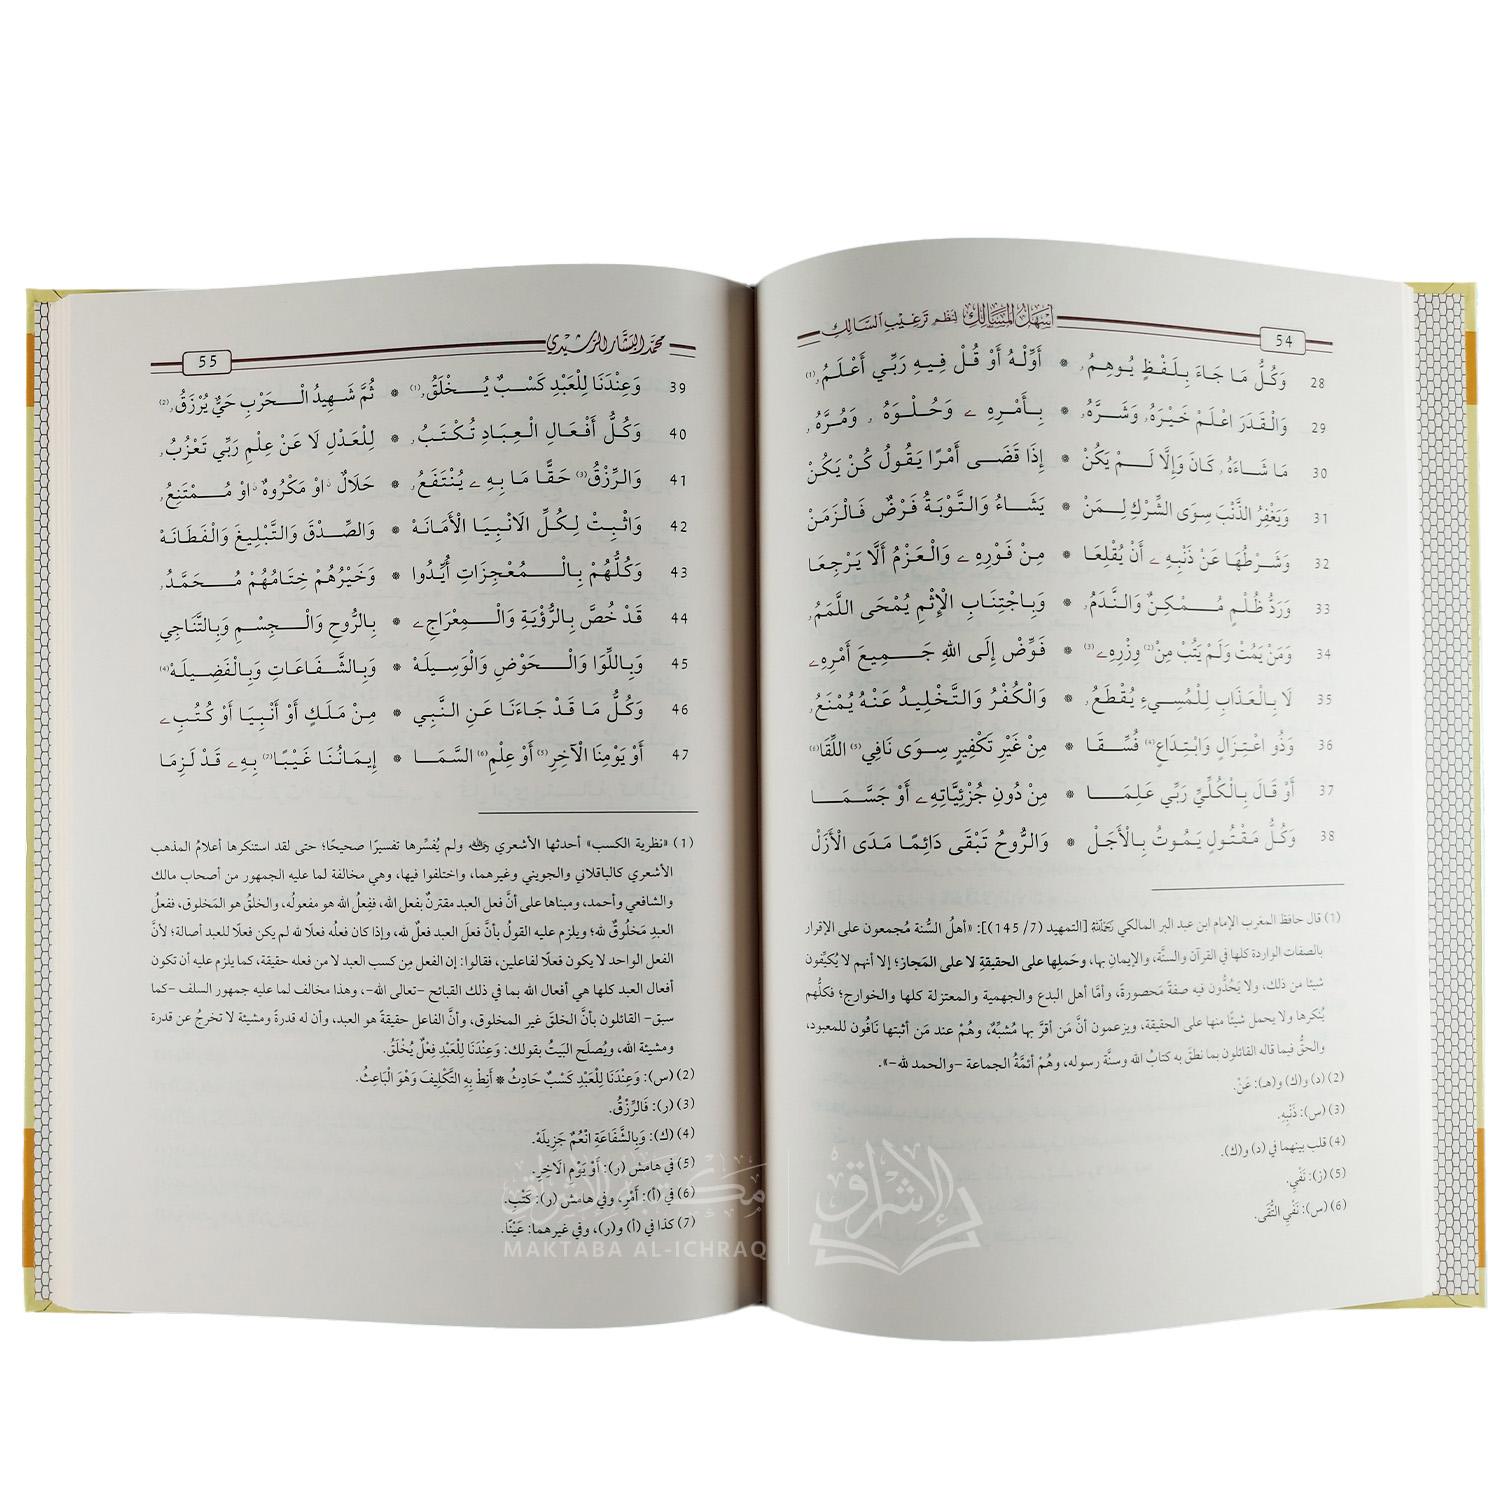 54
أَسْهَلُ المَسَالِكِ لِنَظْمِ تَرْغِيبِ السَّالِكِ
28 وَكُلُّ مَا جَاءَ بِلَفْظٍ يُوهِمُ, * أَوِّلْهُ أَوْ قُلْ فِيهِ رَبِّي أَعْلَمُ, (1)
29 وَالْقَدَرَ اعْلَمْ خَيْرَهُ, وَشَرَّهُ, * بِأَمْرِهِ ے وَحُلْوَهُ, وَمُرَّهُ,
30 مَا شَاءَهُ, كَانَ وَإِلَّا لَمْ يَكُنْ * إِذَا قَضَى أَمْرًا يَقُولُ كُنْ يَكُنْ
31 وَيَغْفِرُ الذَّنْبَ سِوَى الشِّرْكِ لِمَنْ * يَشَاءُ وَالتَّوْبَةُ فَرْضٌ فَالزَمَنْ
32 وَشَرْطُهَا عَنْ ذَنْبِهِ ے أَنْ يُقْلِعَا * مِنْ فَوْرِهِ ے وَالْعَزْمُ أَلَّا يَرْجِعَا
33 وَرَدُّ ظُلْمٍ مُمْكِنٌ وَالنَّدَمُ, * وَبِاجْتِنَابِ الْإِثْمِ يُمْحَى اللَّمَمُ,
34 وَمَنْ يَمُتْ وَلَمْ يَتُبْ مِنْ (2) وِزْرِهِ ے (3) * فَوِّضْ إِلَى اللهِ جَمِيعَ أَمْرِهِ ے
35 لَا بِالْعَذَابِ لِلْمُسِيءِ يُقْطَعُ, * وَالْكُفْرُ وَالتَّخْلِيدُ عَنْهُ يُمْنَعُ,
36 وَذُو اعْتِزَالٍ وَابْتِدَاعٍ (4) فُسِّقَا * مِنْ غَيْرِ تَكْفِيرٍ سِوَى نَافِي (5) اللِّقَا (6)
37 أَوْ قَالَ بِالْكُلِّيِّ رَبِّي عَلِمَا * مِنْ دُونِ جُزْئِيَّاتِهِ ے أَوْ جَسَّمَا
38 وَكُلُّ مَقْتُولٍ يَمُوتُ بِالْأَجَلْ * وَالرُّوحُ تَبْقَى دَائِمًا مَدَى الْأَزَلْ
(1) قال حافظ المغرب الإمام ابن عبد البر المالكي رَحِمَهُ اللهُ [التمهيد (7/ 145)]: «أهلُ السُّنة مُجمعون على الإقرار
بالصفات الواردة كلها في القرآن والسنَّة، والإيمانِ بها، وحَملِها على الحقيقةِ لا على المَجاز؛ إلا أنهم لا يُكيِّفون
شيئا من ذلك، ولا يَحُدُّون فيه صفةً مَحصورةً، وأمَّا أهل البدع والجهمية والمعتزلة كلها والخوارج؛ فكلُّهم
يُنكرها ولا يحمل شيئًا منها على الحقيقة، ويزعمون أنَّ مَن أقرَّ بها مُشبِّهٌ، وهُمْ عند مَن أثبتها نَافُون للمعبود،
والحقُّ فيما قاله القائلون بما نطق به كتابُ الله وسنَّة رسوله، وهُمْ أئمَّةُ الجماعة -والحمد لله-».
(2) (د) و(ك) و(هـ): عَنْ.
(3) (س): ذَنْبِهِ.
(4) قلب بينهما في (د) و(ك).
(5) (ز): نَفْيِ.
(6) (س): نَفْيِ التُّقَى.
محمد البشار الرشيدي
55
39 وَعِنْدَنَا لِلْعَبْدِ كَسْبٌ يُخْلَقُ, (1) * ثُمَّ شَهِيدُ الْحَرْبِ حَيٌّ يُرْزَقُ, (2)
40 وَكُلُّ أَفْعَالِ الْعِبَادِ تُكْتَبُ, * لِلْعَدْلِ لَا عَنْ عِلْمِ رَبِّي تَعْزُبُ,
41 وَالرِّزْقُ (3) حَقًّا مَا بِهِ ے يُنْتَفَعُ, * حَلَالٌ اوْ مَكْرُوهٌ اوْ مُمْتَنِعُ,
42 وَاثْبِتْ لِكُلِّ الَانْبِيَا الْأَمَانَهْ * وَالصِّدْقَ وَالتَّبْلِيغَ وَالْفَطَانَهْ
43 وَكُلُّهُمْ بِالْمُعْجِزَاتِ أُيِّدُوا * وَخَيْرُهُمْ خِتَامُهُمْ مُحَمَّدُ,
44 قَدْ خُصَّ بِالرُّؤْيَةِ وَالْمِعْرَاجِ ے * بِالرُّوحِ وَالْجِسْمِ وَبِالتَّنَاجِي
45 وَبِاللِّوَا وَالْحَوْضِ وَالْوَسِيلَهْ * وَبِالشَّفَاعَاتِ وَبِالْفَضِيلَهْ (4)
46 وَكُلُّ مَا قَدْ جَاءَنَا عَنِ النَّبِي * مِنْ مَلَكٍ أَوْ أَنْبِيَا أَوْ كُتُبِ ے
47 أَوْ يَوْمِنَا الْآخِرِ (5) أَوْ عِلْمِ (6) السَّمَا * إِيمَانُنَا غَيْبًا (7) بِهِ ے قَدْ لَزِمَا
(1) «نظرية الكسب» أحدثها الأشعري رحمه الله ولم يُفسِّرها تفسيرًا صحيحًا؛ حتى لقد استنكرها أعلامُ المذهب
الأشعري كالباقلاني والجويني وغيرهما، واختلفوا فيها، وهي مخالفة لما عليه الجمهور من أصحاب مالك
والشافعي وأحمد، ومبناها على أنَّ فعل العبد مقترنٌ بفعل الله، ففِعلُ الله هو مفعولُه، والخلقُ هو المَخلوق، ففعلُ
العبدِ مَخلُوقٌ لله؛ ويلزم عليه القولُ بأنَّ فعلَ العبد فعلٌ لله، وإذا كان فعلُه فعلًا لله لم يكن فعلًا للعبد أصالة؛ لأنَّ
الفعل الواحد لا يكون فعلًا لفاعلين، فقالوا: إن الفعل مِن كسب العبد لا من فعله حقيقة، كما يلزم عليه أن تكون
أفعال العبد كلها هي أفعال الله بما في ذلك القبائح -تعالى الله-، وهذا مخالف لما عليه جمهور السلف -كما
سبق- القائلون بأنَّ الخلقَ غير المخلوق، وأنَّ الفاعل حقيقةً هو العبد، وأن له قدرةً ومشيئة لا تخرجُ عن قدرة
ومشيئة الله، ويُصلَح البَيتُ بقولك: وَعِنْدَنَا لِلْعَبْدِ فِعْلٌ يُخْلَقُ.
(2) (س): وَعِنْدَنَا لِلْعَبْدِ كَسْبٌ حَادِثُ * أَنِطْ بِهِ التَّكْلِيفَ وَهْوَ الْبَاعِثُ.
(3) (ر): فَالرِّزْقُ.
(4) (ك): وَبِالشَّفَاعَةِ انْعُمْ جَزِيلَهْ.
(5) في هامش (ر): أَوْ يَوْمِ الَاخِرِ.
(6) في (أ): أَمْرِ، وفي هامش (ر): كَتْبِ.
(7) كذا في (أ) و(ر)، وفي غيرهما: عَيْنًا.
مكتبة الإشراق
MAKTABA AL-ICHRAQ
الإشراق